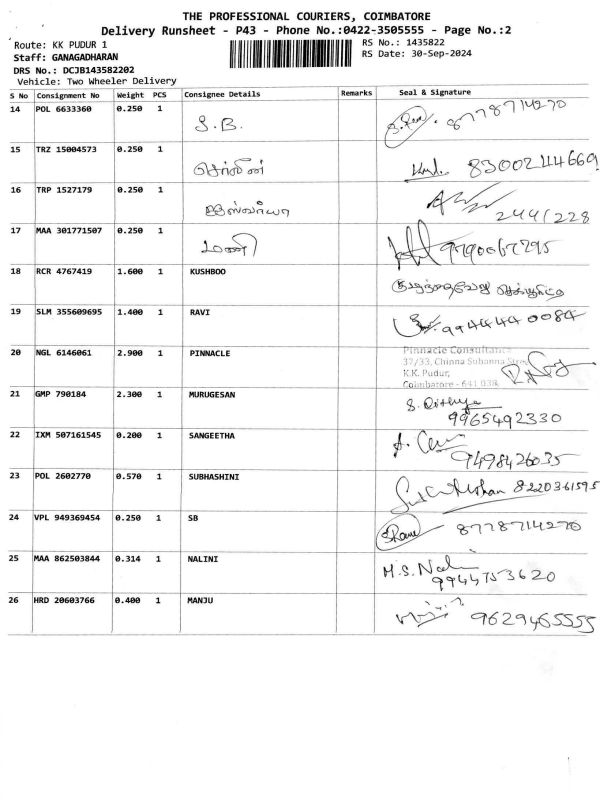 THE PROFESSIONAL COURIERS, COIMBATORE
Delivery Runsheet - P43 - Phone No.:0422-3505555 - Page No.:2
Route: KK PUDUR 1 RS No.: 1435822
Staff: GANAGADHARAN RS Date: 30-Sep-2024
DRS No.: DCJB143582202
Vehicle: Two Wheeler Delivery
S No Consignment No Weight PCS Consignee Details Remarks Seal & Signature
14 POL 6633360 0.250 1 S.B. 8778714270
15 TRZ 15004573 0.250 1 செல்வின் 8300244669
16 TRP 1527179 0.250 1 ஐஸ்வர்யா 244/228
17 MAA 301771507 0.250 1 மணி 9790067295
18 RCR 4767419 1.600 1 KUSHBOO
19 SLM 355609695 1.400 1 RAVI 9944440084
20 NGL 6146061 2.900 1 PINNACLE Pinnacle Consultancy
37/33, Chinna Subanna Street,
K.K. Pudur,
Coimbatore - 641 038.
21 GMP 790184 2.300 1 MURUGESAN 9965492330
22 IXM 507161545 0.200 1 SANGEETHA 9498426035
23 POL 2602770 0.570 1 SUBHASHINI 8220361595
24 VPL 949369454 0.250 1 SB 8778714270
25 MAA 862503844 0.314 1 NALINI M.S. Nalini
9944753620
26 HRD 20603766 0.400 1 MANJU 9629465555